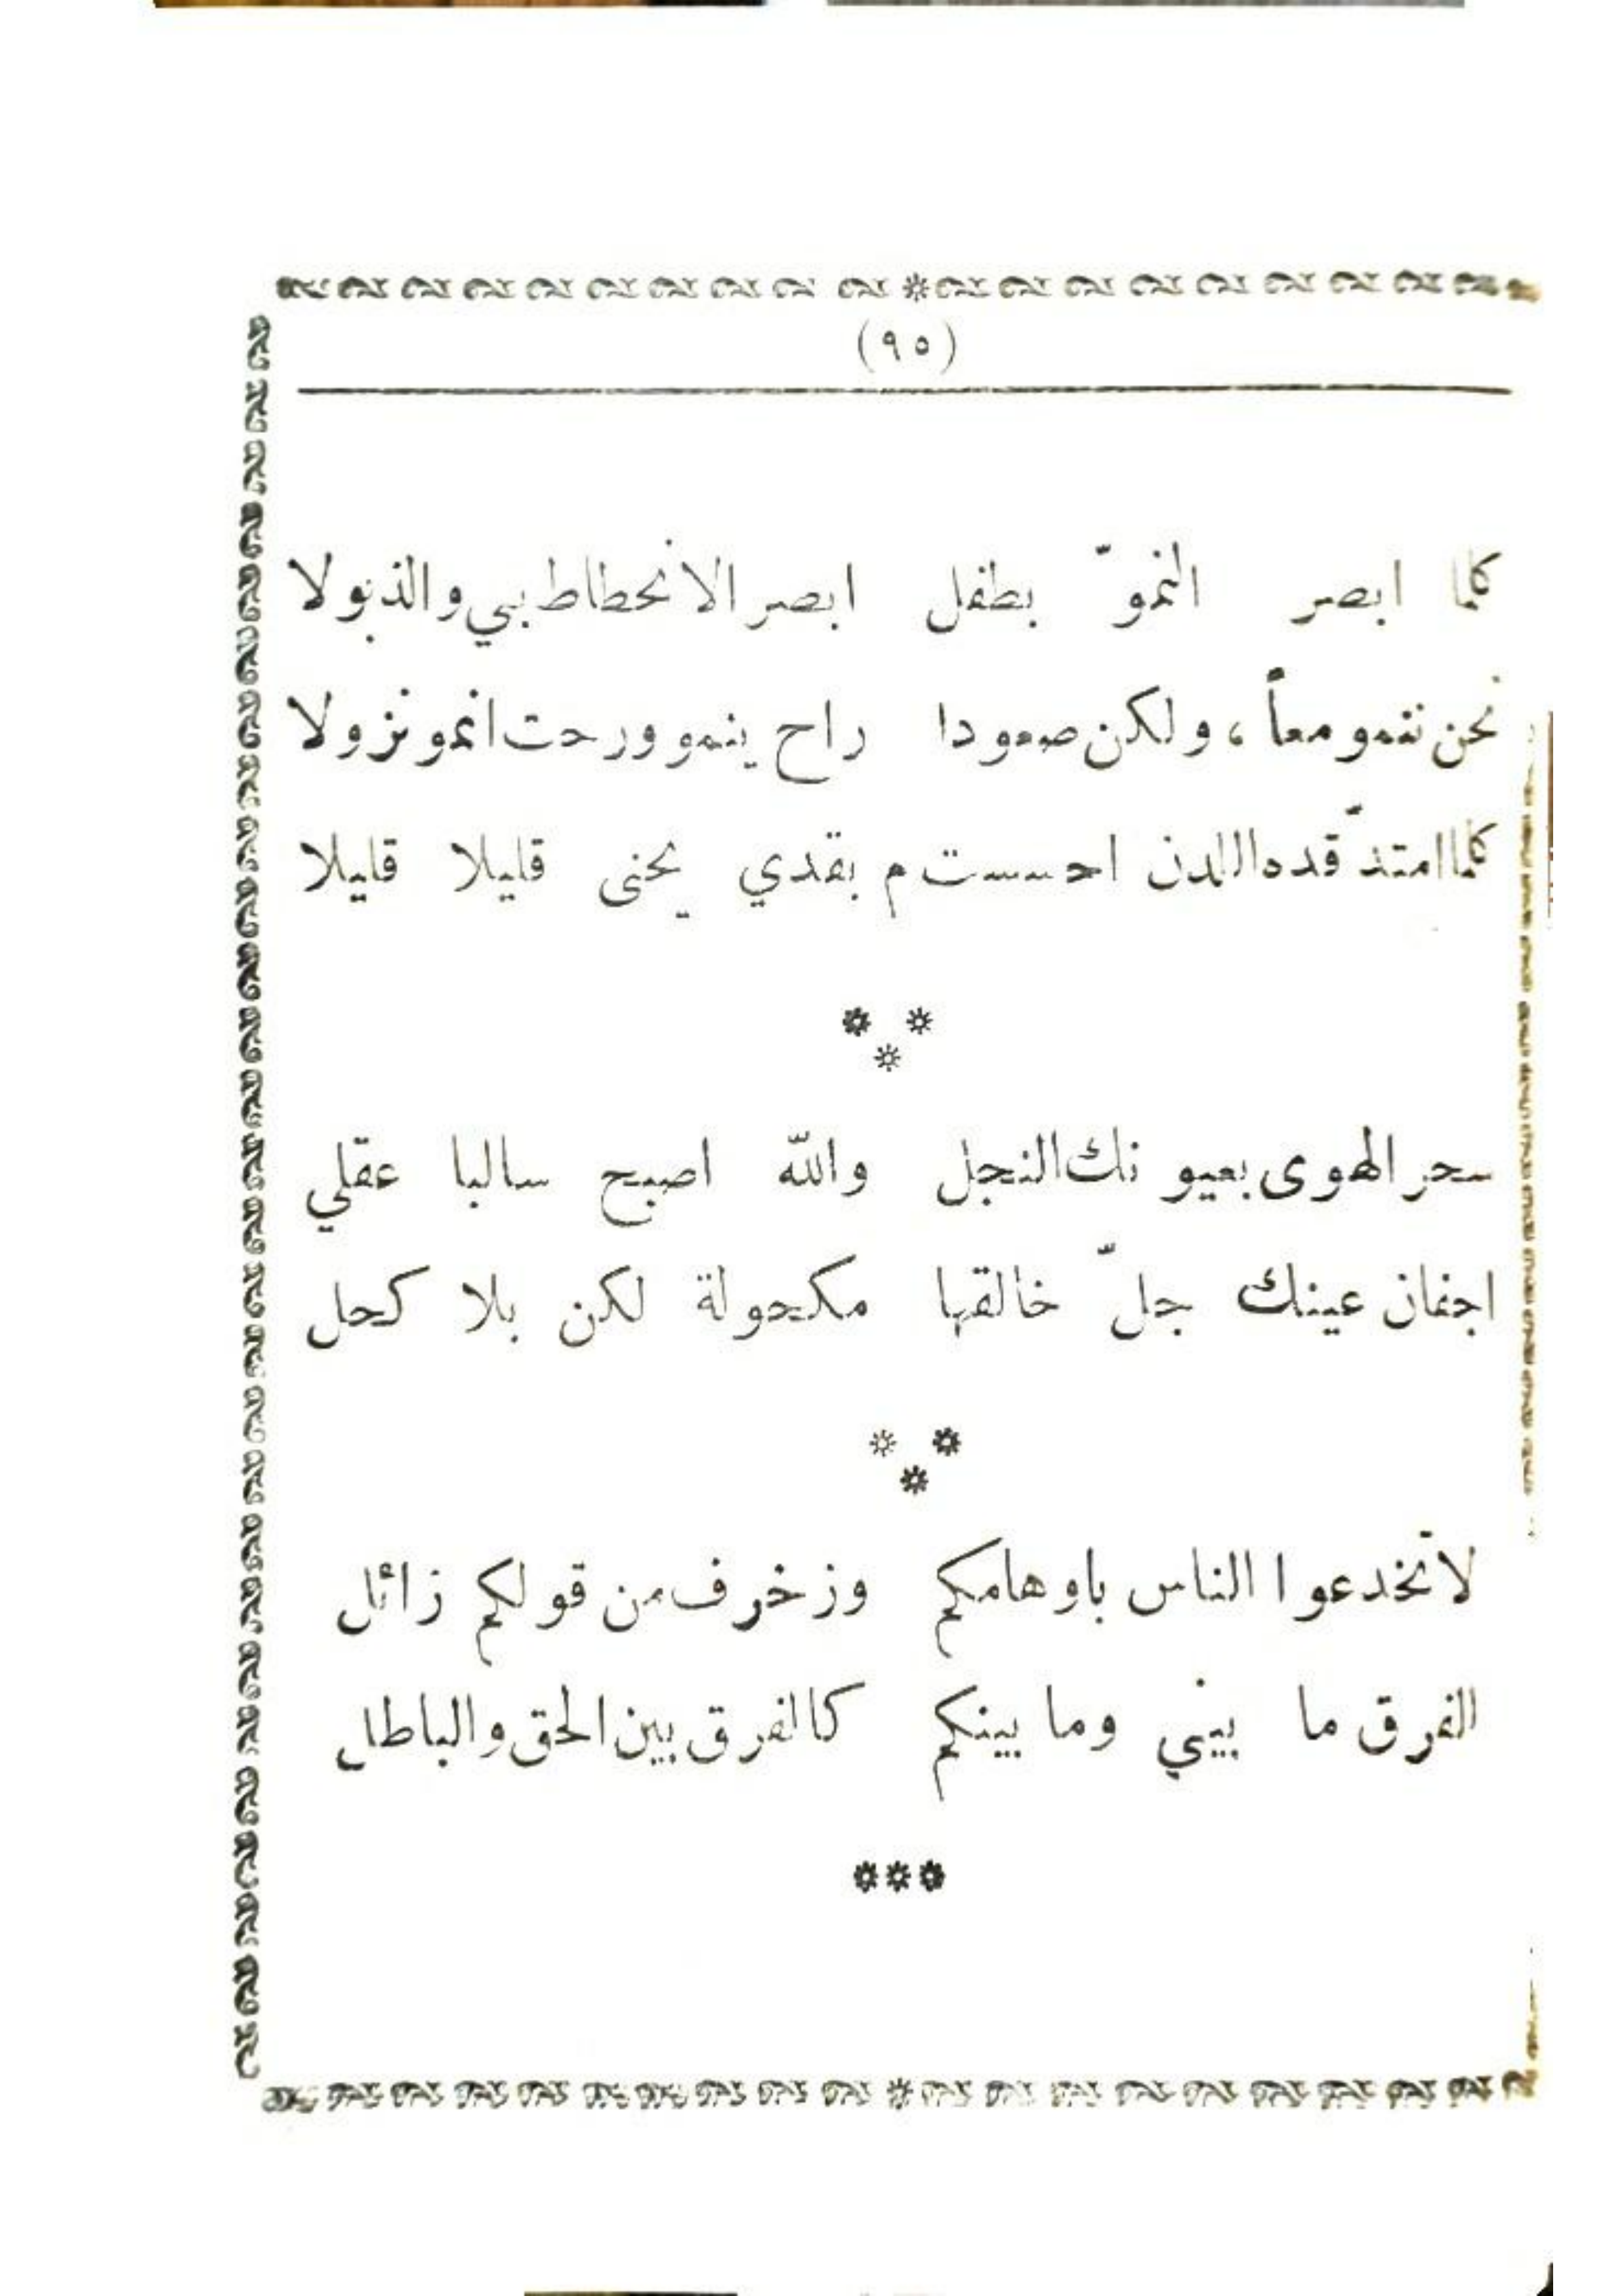 (٩٥)
كلما ابصر النموّ بطفل ابصر الانحطاط بي والذبولا
نحن ننمو معاً ، ولكن صعودا راح ينمو ورحت انمو نزولا
كلما امتدّ قده اللدن احسست م بقدي يحنى قليلا قليلا
* *
*
سحر الهوى بعيونك النجل والله اصبح سالبا عقلي
اجفان عينك جلّ خالقها مكحولة لكن بلا كحل
* *
*
لا تخدعوا الناس باوهامكم وزخرف من قولكم زائل
الفرق ما بيني وما بينكم كالفرق بين الحق والباطل
***